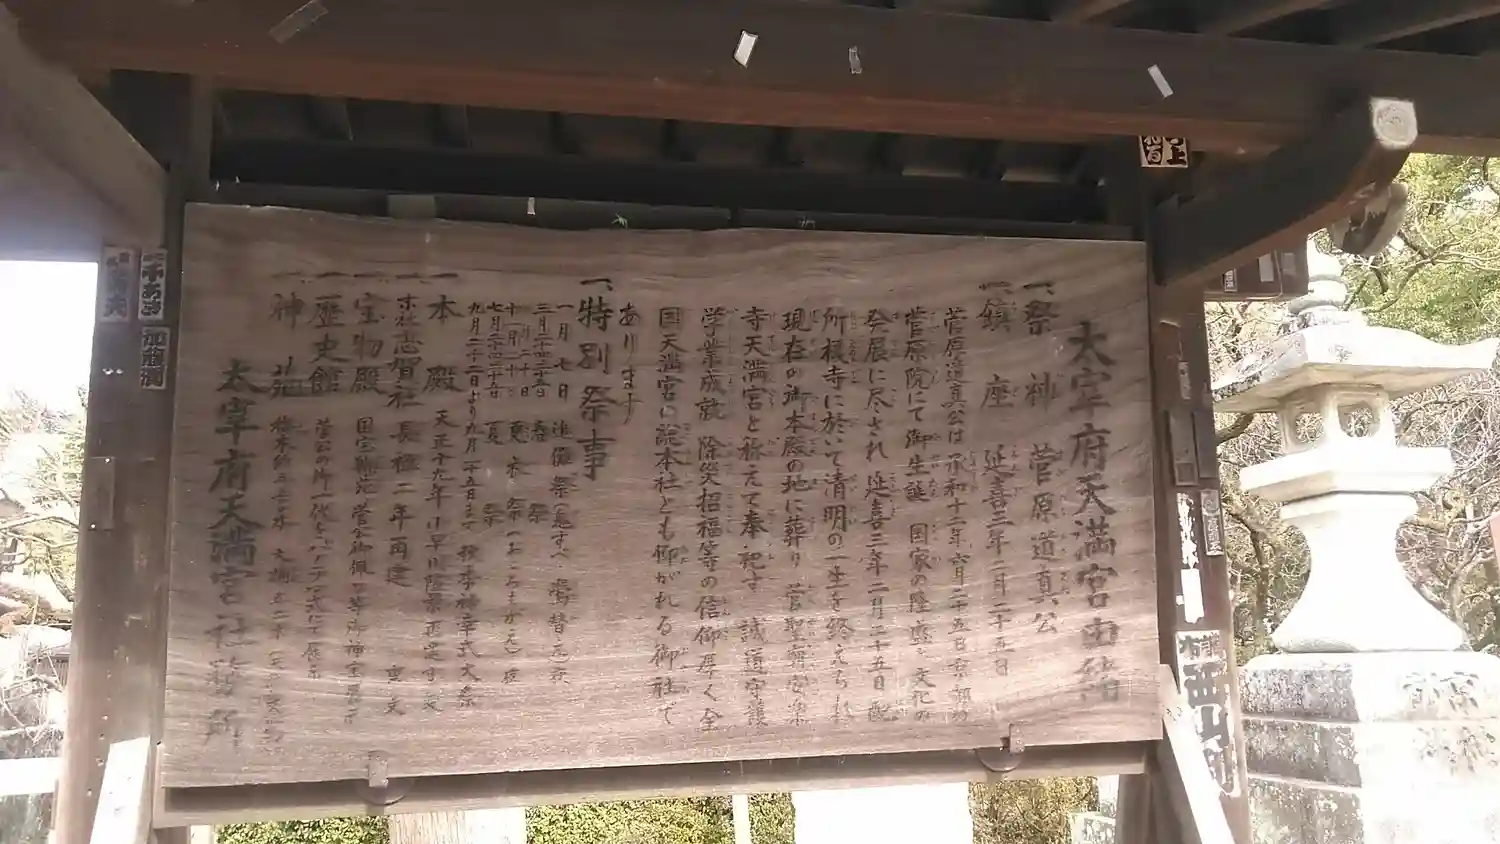 太宰府天満宮由緒
一、祭神 菅原道真公
一、鎮座 延喜三年二月二十五日
菅原道真公は承和十二年六月二十五日京都の
菅原院にて御生誕 国家の隆盛と文化の
発展に尽され 延喜三年二月二十五日配
所榎寺に於いて清明の一生を終えられ
現在の御本殿の地に葬り 菅聖廟安楽
寺天満宮と称えて奉祀す 誠道守護
学業成就 除災招福等の信仰厚く全
国天満宮の総本社とも仰がれる御社で
あります
一、特別祭事
一月七日 追儺祭(鬼すべ 鷽替え)夜
春祭
更衣祭(おころもがえ)夜
七月二十四 二十五日 夏祭
九月二十二日より九月二十五日まで 神幸式大祭
一本殿 天正十九年 小早川隆景再建す 重文
一末社志賀社 長禄二年再建 重文
一宝物殿 国宝翰苑 菅公御佩
一歴史館 菅公御一代をハカタ人形にて展示
一神苑
太宰府天満宮社務所